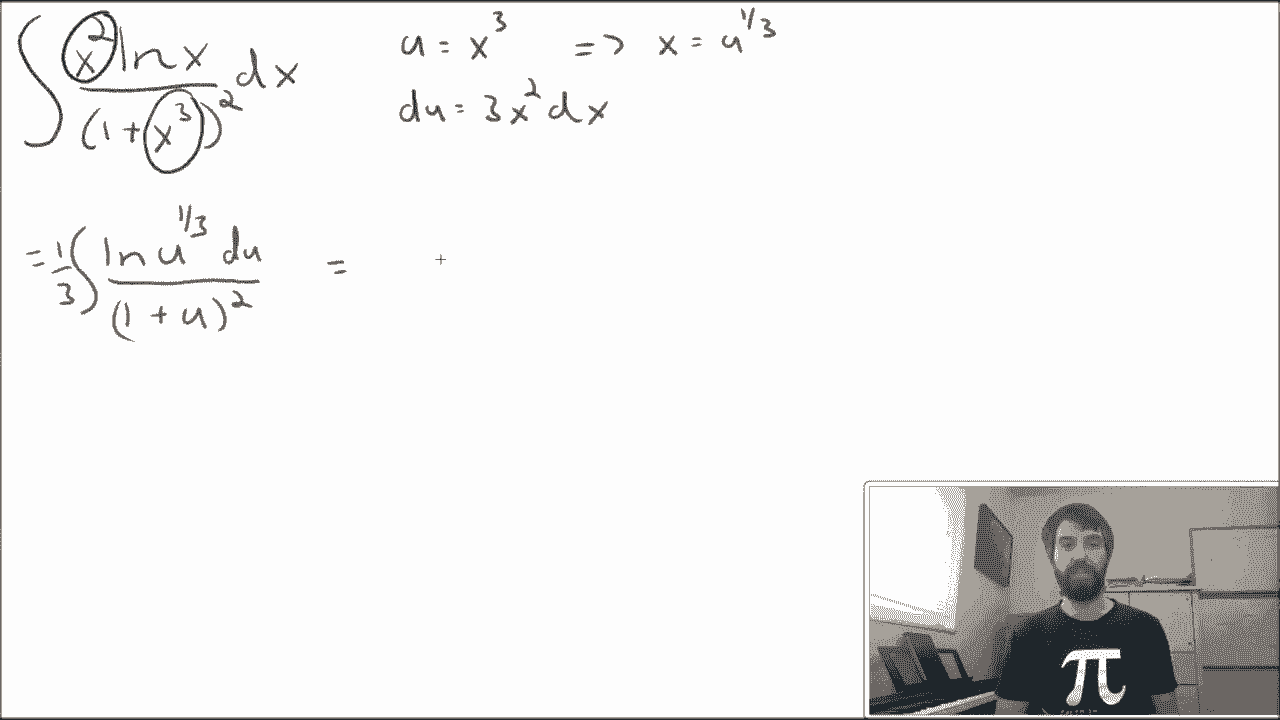 ∫ x² ln x / (1 + x³)² dx    u = x³ => x = u^{1/3}
du = 3x² dx
= 1/3 ∫ ln u^{1/3} du / (1 + u)² =
π